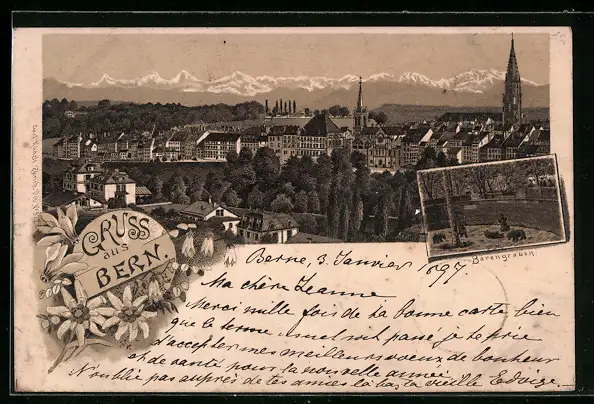 GRUSS
aus
BERN.
Bärengraben
Berne, 3 Janvier 1897
Ma chère Jeanne
Merci mille fois de ta bonne carte bien
que le terme usuel soit passé je te prie
d'accepter mes meilleurs voeux de bonheur
et de santé pour la nouvelle année
N'oublie pas auprès de tes amies là bas, la vieille Edwige.